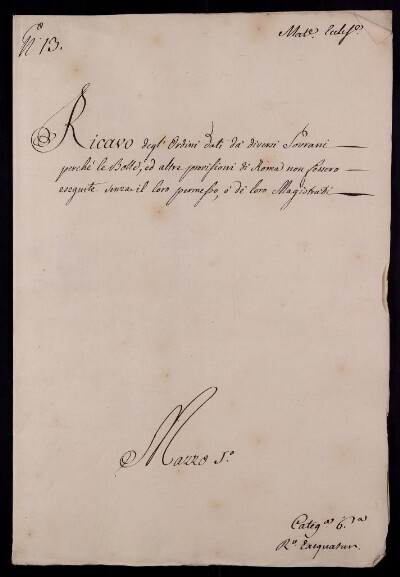 N.º 13.
Mat.e Eccles.e
Ricavo degl' Ordini dati da' diversi Sovrani
perchè le Bolle, ed altre provisioni di Roma non fossero
eseguite senza il loro permesso, o de loro Magistrati
Mazzo 1.º
Categ.a 6.ta
R.o Exequatur.